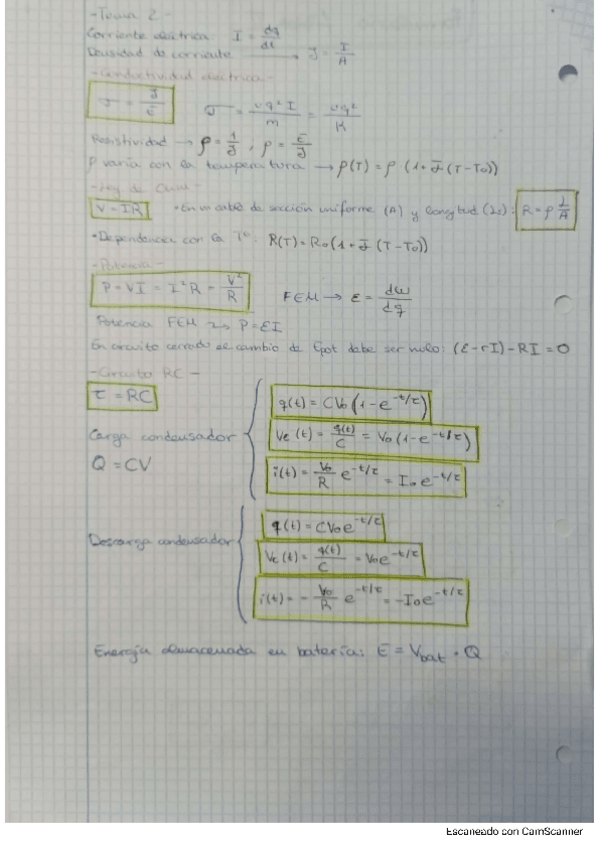 - Tema 2 -
Corriente eléctrica I = dq/dt
Densidad de corriente → J = I/A
- Conductividad eléctrica -
σ = J/E σ = = 
Resistividad → ρ = 1/σ, ρ = E/J
ρ varía con la temperatura → ρ(T) = ρ (1+ (T-T₀))
- Ley de Ohm -
V = IR • En un cable de sección uniforme (A) y longitud : R = ρ L/A
• Dependencia con la Tª: R(T) = R₀(1+ (T-T₀))
- Potencia -
P = VI = I²R = V²/R FEM → ε = dW/dq
Potencia FEM → P = εI
En circuito cerrado el cambio de Epot debe ser nulo: (ε-rI)-RI = 0
- Circuito RC -
τ = RC
Carga condensador
Q = CV
q(t) = CV₀(1-e^-t/τ)
Vc(t) = q(t)/C = V₀(1-e^-t/τ)
i(t) = V₀/R e^-t/τ = I₀e^-t/τ
Descarga condensador
q(t) = CV₀e^-t/τ
Vc(t) = q(t)/C = V₀e^-t/τ
i(t) = -V₀/R e^-t/τ = -I₀e^-t/τ
Energía almacenada en batería: E = Vbat · Q
Escaneado con CamScanner